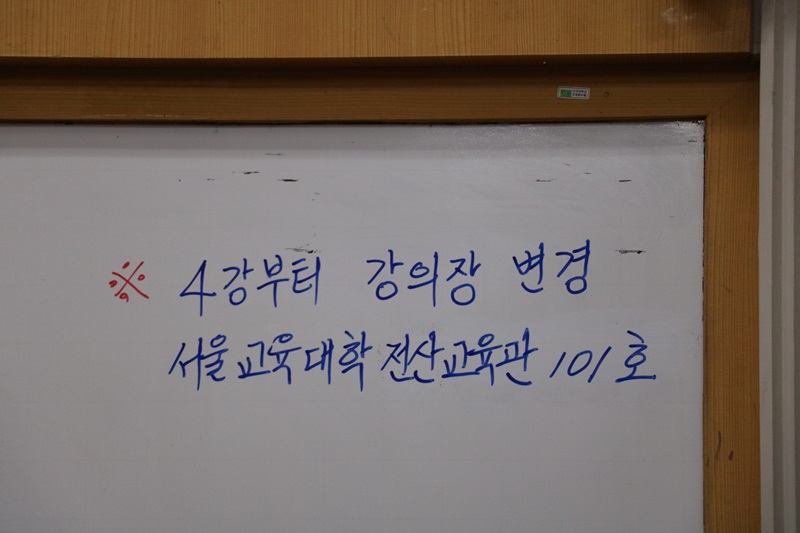 ※ 4강부터 강의장 변경
서울교육대학 전산교육관 101호